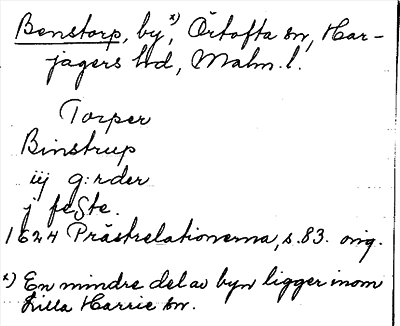 Benstorp, by,ˣ⁾ Örtofta sn, Har-
jagers hd, Malm. l.
Torper
Binstrup
iij g:rder
j feste.
1624 Prästrelationerna, s. 83. orig.
ˣ⁾ En mindre del av byn ligger inom
Lilla Harrie sn.